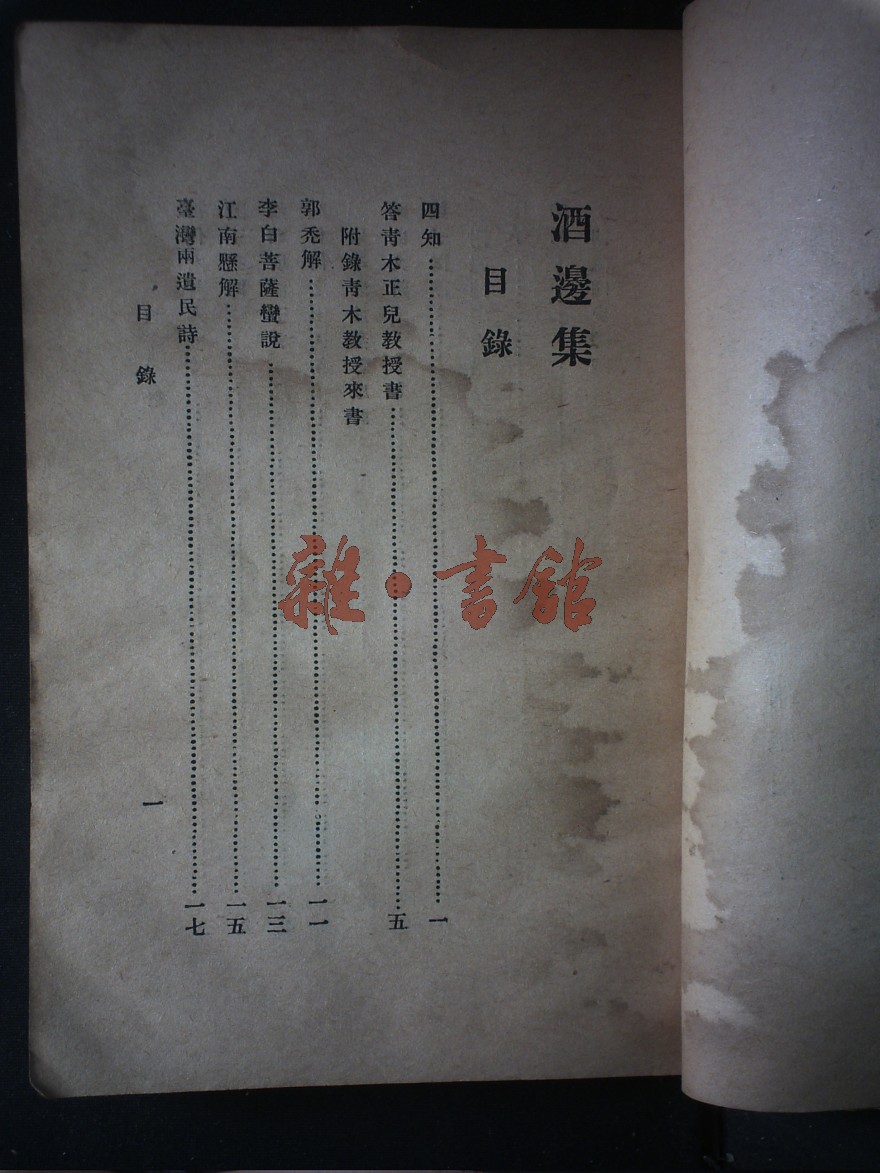 酒邊集
目錄
四知……一
答靑木正兒敎授書……五
附錄靑木敎授來書
郭禿解……一一
李白菩薩蠻說……一三
江南懸解……一五
臺灣兩遺民詩……一七
目錄
一
雜·書館